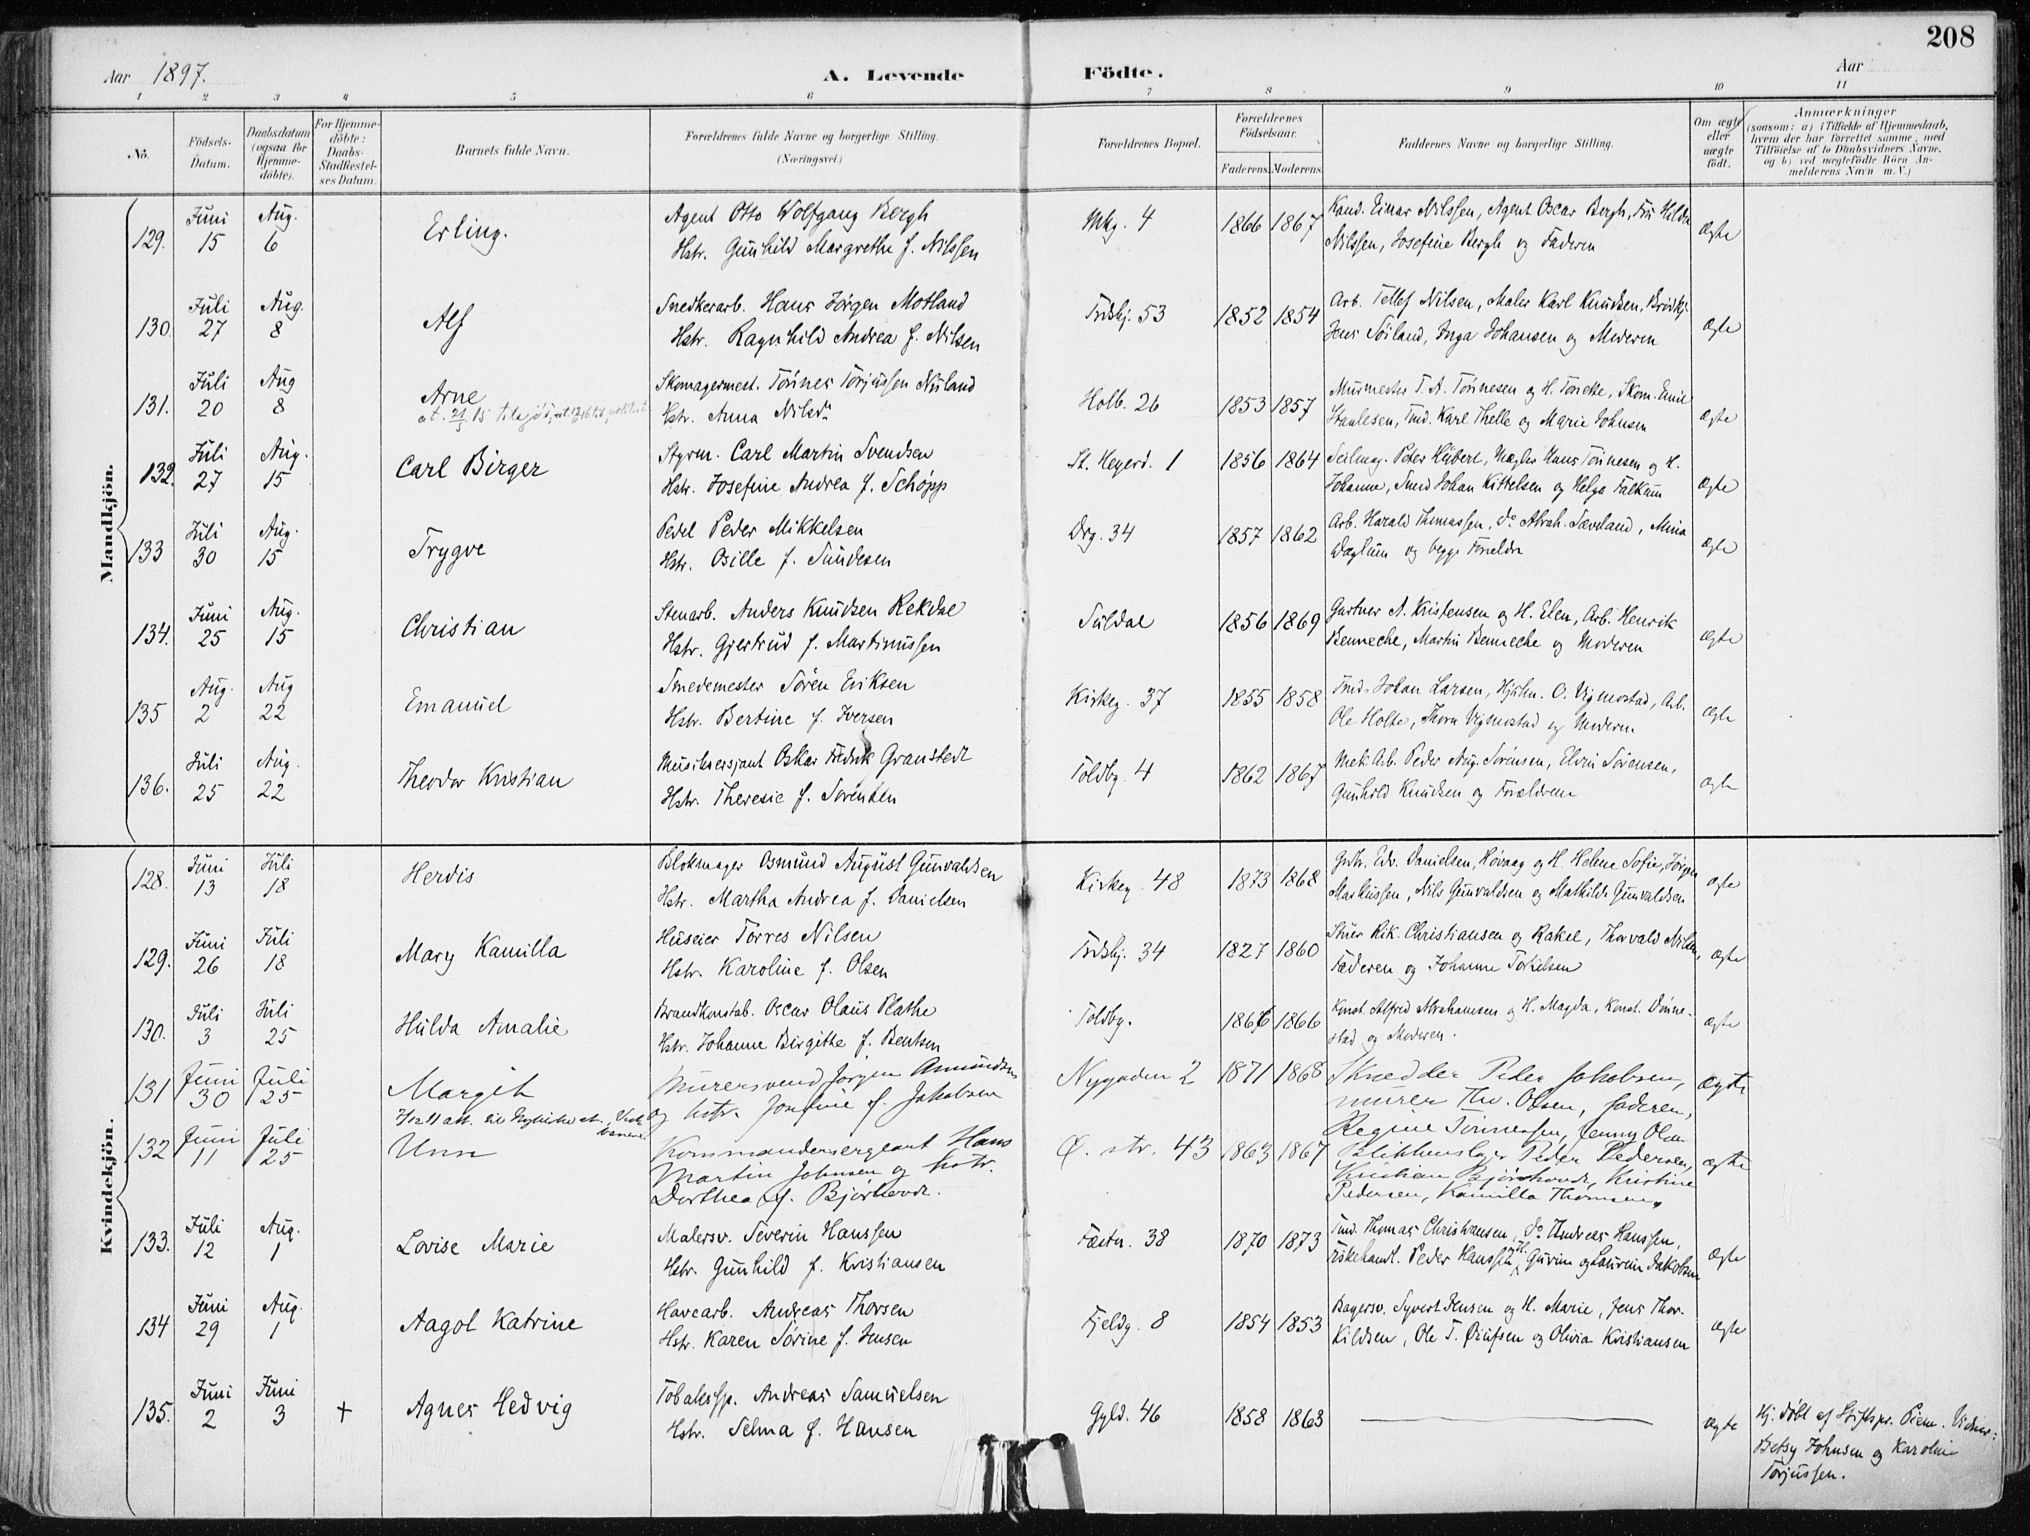 208
Aar 1897. A. Levende Födte. Aar
1 2 3 4 5 6 7 8 9 10 11
No. Födsels-Datum. Daabsdatum (ogsaa for Hjemme-döbte). For Hjemme-döbte: Daabs-Stadfæstel-ses Datum. Barnets fulde Navn. Forældrenes fulde Navne og borgerlige Stilling. (Næringsvei.) Forældrenes Bopæl. Forældrenes Födselsaar. Faderens. Moderens. Faddernes Navne og borgerlige Stilling. Om ægte eller uægte födt. Anmærkninger (saasom: a) i Tilfælde af Hjemmedaab, hvem der har forrettet samme, med Tilföielse af to Daabsvidners Navne, og b) ved uægtefödte Börn An-melderens Navn m. V.)
Mandkjön.
129. Juni 15 Aug. 6 Erling. Agent Otto Wolfgang Bergh Mkg. 4 1866 1867 Kand. Einar Nilssen, Agent Oscar Bergh, Fru Hilda ægte
Hstr. Gunhild Margrethe f. Nilssen Nilssen, Josefine Bergh og Faderen
130. Juli 27 Aug. 8 Alf Snedkerarb. Hans Jørgen Motland Trdskj. 53 1852 1854 Arb. Tellef Nilsen, Maler Karl Knudsen, ægte
Hstr. Ragnhild Andrea f. Nilsen Jens Söiland, Inga Johansen og Moderen
131. Juli 20 Aug 8 Arne Skomagermest. Tönnes Torjussen Nuland Holb. 26 1853 1857 Murmester T. A. Tönnesen og H. Tonette, Skom. Emil ægte
Hstr. Anna Nilsdr Staalesen, Tmd. Karl Thelle og Marie Johnsen
132. Juli 27 Aug. 15 Carl Birger Styrm. Carl Martin Svendsen St. Heyerd. 1 1856 1864 Seilmag. Peter Hübert, Mægler Hans Tönnesen og H. ægte
Hstr. Josefine Andrea f. Schöpp Johanne, Smed Johan Kittelsen og Helga Falkum
133 Juli 30 Aug. 15 Trygve Pedel Peder Mikkelsen Drg. 34 1857 1862 Arb. Harald Thomassen, do Abrah. Sæveland, Mina ægte
Hstr. Osille f. Tundesen Waglum og begge Foreldre
134. Juni 25 Aug. 15 Christian Stenarb. Anders Knudsen Rekdal Suldal 1856 1869 Gartner A. Kristensen og H. Elen, Arb. Henrik ægte
Hstr. Gjertrud f. Martinussen Benneche, Martin Benneche og Moderen
135 Aug. 2 Aug 22 Emanuel Smedemester Sören Eriksen Kirkeg. 37 1855 1858 Tmd. Johan Larsen, O. Vigmostad, Arb. ægte
Hstr. Bertine f. Iversen Ole Holte, Thora Vigmostad og Moderen
136. Juli 25 Aug. 22 Theodor Kristian Musikersjant Oskar Fredrik Granstedt Toldbg. 4 1862 1867 Mek. Arb. Peder Aug. Sörensen, Elvin Sörensen, ægte
Hstr. Theresie f. Sörensen Gunhild Knudsen og Forældrene
Kvindekjön.
128. Juni 13 Juli 18 Herdis Blokmager Osmund August Gunvaldsen Kirkeg. 48 1873 1868 Edv. Danielsen, Høvaag og H. Helene Sofie, Jörgen ægte
Hstr. Martha Andrea f. Danielsen Markussen, Nils Gunvaldsen og Mathilde Gunvaldsen
129. Juni 26 Juli 18 Mary Kamilla Huseier Torres Nilsen Trdskj. 34 1827 1860 Rik. Christiansen og Rakel, Thorvald Nilsen, ægte
Hstr. Karoline f. Olsen Faderen og Johanne
130. Juli 3 Juli 25 Hulda Amalie Brandkonstab. Oscar Olaus Plathe Toldbg. 1866 1866 Konst. Alfred Abrahamsen og H. Magda, Konst. Dönne- ægte
Hstr. Johanne Birgithe f. Bentsen stad og Moderen.
131 Juni 30 Juli 25 Margit Murersvend Jørgen Amundsen Nygaden 2 1871 1868 Skrædder Peder Jakobsen, ægte
og hstr. Josefine f. Jakobsen murer Th. Olsen, faderen,
Regine Tönnessen, Jenny Olsen
132 Juni 11 Juli 25 Unn Kommandersergeant Hans Ø. str. 43 1863 1867 Blikkenslager Peder Pedersen, ægte
Martin Johnsen og hstr. Kristian Bjørhovde, Kristine
Dorthea f. Bjørhovde. Pedersen, Kamilla Thomsen.
133. Juli 12 Aug. 1 Lovise Marie Malersv. Severin Hanssen Fæstn. 38 1870 1873 Tmd. Thomas Christiansen, do Andreas Hanssen, ægte
Hstr. Gunhild f. Kristiansen Fiskehandl. Peder Hanssen, H. Gurine og Laurine Jakobsen
134 Juni 29 Aug. 1 Aagot Katrine Havearb. Andreas Thorsen Fjeldg. 8 1854 1853 Bagersv. Syvert Jensen og H. Marie, Jens Thor- ægte
Hstr. Karen Sörine f. Jensen kildsen, Ole T. Ølufsen og Olivia Kristiansen
135. Juni 2 Juni 3 + Agnes Hedvig Andreas Samuelsen Gyld. 46 1858 1863 ægte Hj. döbt af Stiftspr. Vidner:
Hstr. Selma f. Hansen Betsy Johnsen og Karoline
Torjussen.